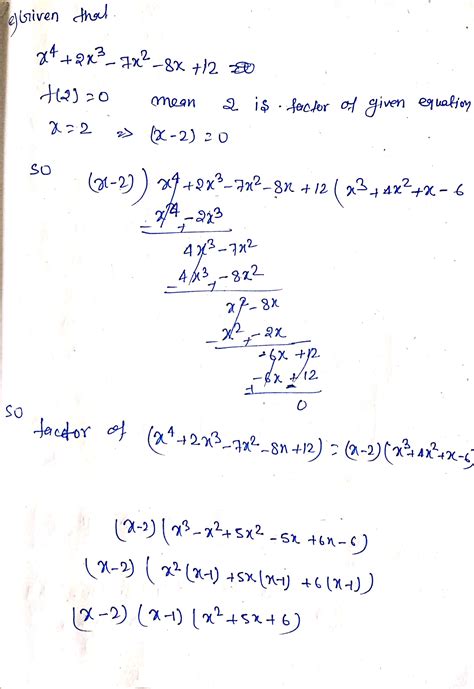 e) Given that
x⁴ + 2x³ - 7x² - 8x + 12
f(2) = 0 mean 2 is factor of given equation
x = 2 ⇒ (x-2) = 0
so
(x-2) ) x⁴ + 2x³ - 7x² - 8x + 12 ( x³ + 4x² + x - 6
x⁴ - 2x³
- +
4x³ - 7x²
4x³ - 8x²
- +
x² - 8x
x² - 2x
- +
-6x + 12
-6x + 12
+ -
0
so
factor of (x⁴ + 2x³ - 7x² - 8x + 12) = (x-2) (x³ + 4x² + x - 6)
(x-2) (x³ - x² + 5x² - 5x + 6x - 6)
(x-2) ( x² (x-1) + 5x (x-1) + 6 (x-1) )
(x-2) (x-1) (x² + 5x + 6)